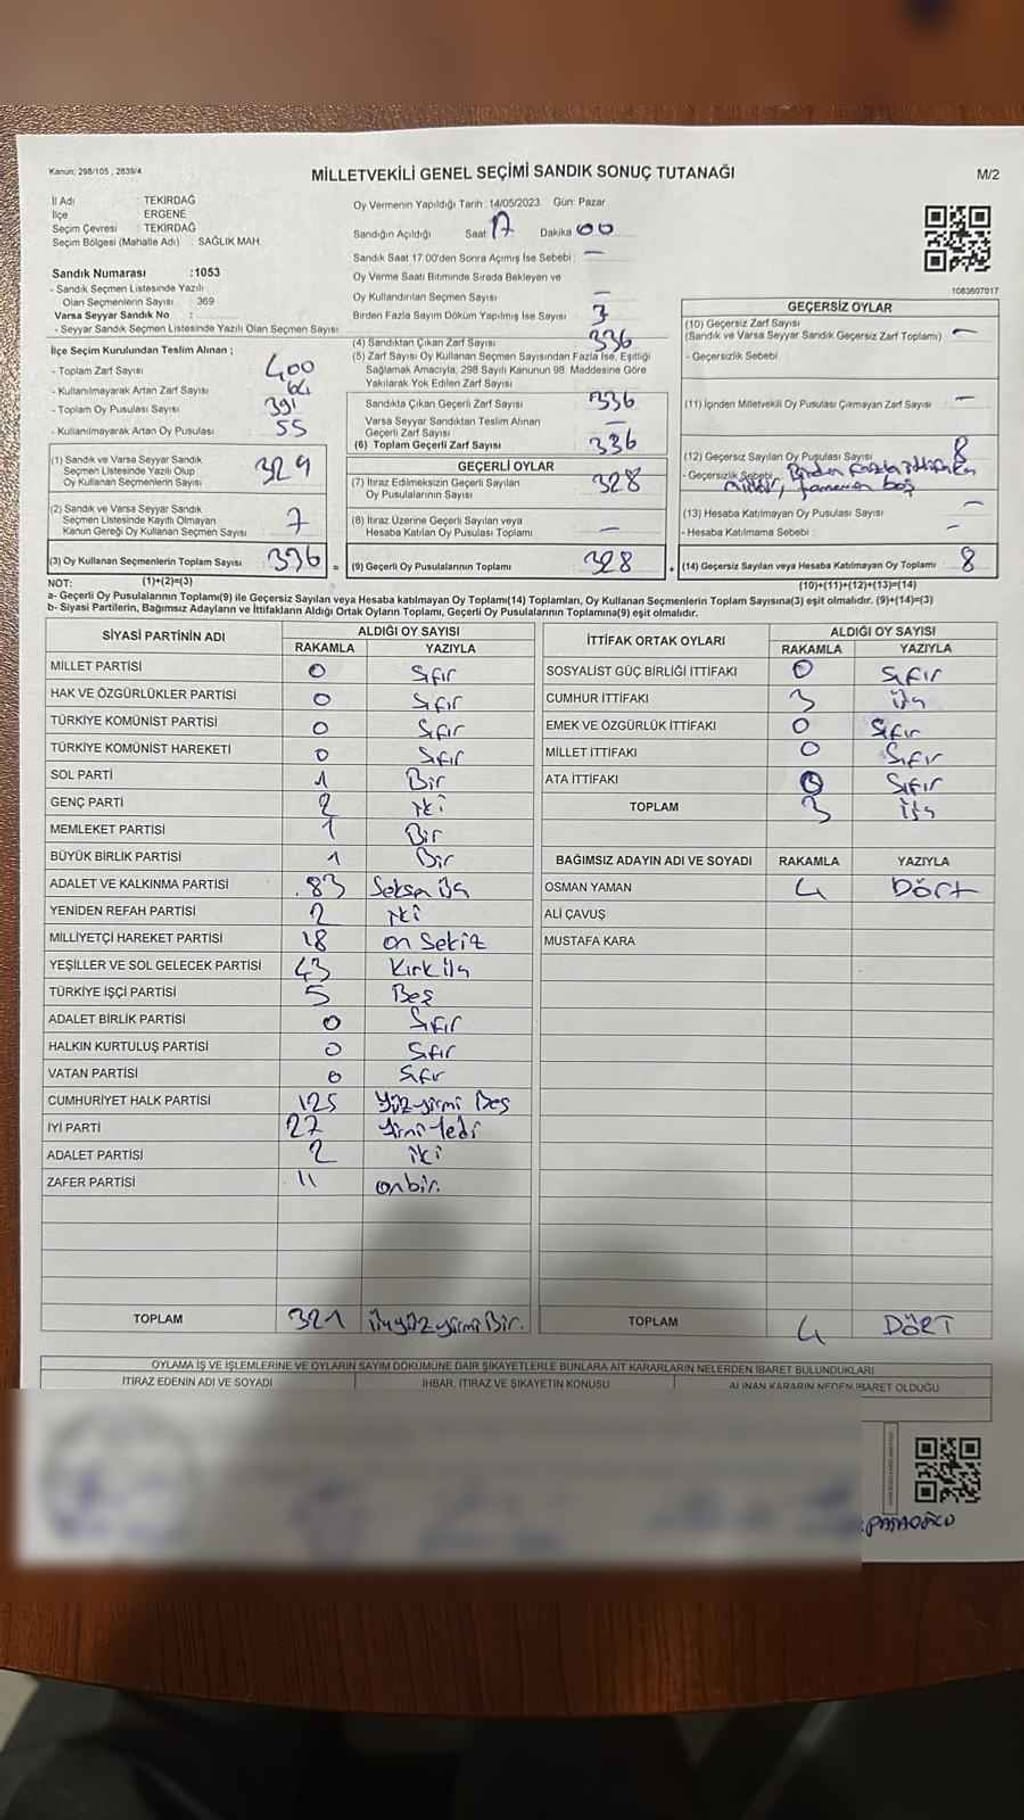 Kanun: 298/105 , 2839/4
MİLLETVEKİLİ GENEL SEÇİMİ SANDIK SONUÇ TUTANAĞI
M/2
İl Adı : TEKİRDAĞ
İlçe : ERGENE
Seçim Çevresi : TEKİRDAĞ
Seçim Bölgesi (Mahalle Adı) : SAĞLIK MAH.
Sandık Numarası :1053
- Sandık Seçmen Listesinde Yazılı
Olan Seçmenlerin Sayısı : 369
Varsa Seyyar Sandık No :
- Seyyar Sandık Seçmen Listesinde Yazılı Olan Seçmen Sayısı
Oy Vermenin Yapıldığı Tarih : 14/05/2023 Gün: Pazar
Sandığın Açıldığı Saat 17 Dakika 00
Sandık Saat 17.00'den Sonra Açılmış İse Sebebi : —
Oy Verme Saati Bitiminde Sırada Bekleyen ve
Oy Kullandırılan Seçmen Sayısı —
Birden Fazla Sayım Döküm Yapılmış İse Sayısı 3
1083607017
İlçe Seçim Kurulundan Teslim Alınan ;
- Toplam Zarf Sayısı 400
- Kullanılmayarak Artan Zarf Sayısı 64
- Toplam Oy Pusulası Sayısı 391
- Kullanılmayarak Artan Oy Pusulası 55
(1) Sandık ve Varsa Seyyar Sandık
Seçmen Listesinde Yazılı Olup
Oy Kullanan Seçmenlerin Sayısı 329
(2) Sandık ve Varsa Seyyar Sandık
Seçmen Listesinde Kayıtlı Olmayan
Kanun Gereği Oy Kullanan Seçmen Sayısı 7
(3) Oy Kullanan Seçmenlerin Toplam Sayısı 336 =
(1)+(2)=(3)
(4) Sandıktan Çıkan Zarf Sayısı 336
(5) Zarf Sayısı Oy Kullanan Seçmen Sayısından Fazla İse, Eşitliği
Sağlamak Amacıyla; 298 Sayılı Kanunun 98. Maddesine Göre
Yakılarak Yok Edilen Zarf Sayısı
Sandıkta Çıkan Geçerli Zarf Sayısı 336
Varsa Seyyar Sandıktan Teslim Alınan
Geçerli Zarf Sayısı —
(6) Toplam Geçerli Zarf Sayısı 336
GEÇERLİ OYLAR
(7) İtiraz Edilmeksizin Geçerli Sayılan
Oy Pusulalarının Sayısı 328
(8) İtiraz Üzerine Geçerli Sayılan veya
Hesaba Katılan Oy Pusulası Toplamı —
(9) Geçerli Oy Pusulalarının Toplamı 328 +
GEÇERSİZ OYLAR
(10) Geçersiz Zarf Sayısı
(Sandık ve Varsa Seyyar Sandık Geçersiz Zarf Toplamı) —
- Geçersizlik Sebebi
(11) İçinden Milletvekili Oy Pusulası Çıkmayan Zarf Sayısı —
(12) Geçersiz Sayılan Oy Pusulası Sayısı 8
- Geçersizlik Sebebi Birden fazla
boş
(13) Hesaba Katılmayan Oy Pusulası Sayısı —
- Hesaba Katılmama Sebebi —
(14) Geçersiz Sayılan veya Hesaba Katılmayan Oy Toplamı 8
(10)+(11)+(12)+(13)=(14)
NOT:
a- Geçerli Oy Pusulalarının Toplamı(9) ile Geçersiz Sayılan veya Hesaba katılmayan Oy Toplamı(14) Toplamları, Oy Kullanan Seçmenlerin Toplam Sayısına(3) eşit olmalıdır. (9)+(14)=(3)
b- Siyasi Partilerin, Bağımsız Adayların ve İttifakların Aldığı Ortak Oyların Toplamı, Geçerli Oy Pusulalarının Toplamına(9) eşit olmalıdır.
SİYASİ PARTİNİN ADI ALDIĞI OY SAYISI
RAKAMLA YAZIYLA
MİLLET PARTİSİ 0 Sıfır
HAK VE ÖZGÜRLÜKLER PARTİSİ 0 Sıfır
TÜRKİYE KOMÜNİST PARTİSİ 0 Sıfır
TÜRKİYE KOMÜNİST HAREKETİ 0 Sıfır
SOL PARTİ 1 Bir
GENÇ PARTİ 2 iki
MEMLEKET PARTİSİ 1 Bir
BÜYÜK BİRLİK PARTİSİ 1 Bir
ADALET VE KALKINMA PARTİSİ 83 Seksen üç
YENİDEN REFAH PARTİSİ 2 iki
MİLLİYETÇİ HAREKET PARTİSİ 18 on Sekiz
YEŞİLLER VE SOL GELECEK PARTİSİ 43 Kırk üç
TÜRKİYE İŞÇİ PARTİSİ 5 Beş
ADALET BİRLİK PARTİSİ 0 Sıfır
HALKIN KURTULUŞ PARTİSİ 0 Sıfır
VATAN PARTİSİ 0 Sıfır
CUMHURİYET HALK PARTİSİ 125 Yüz yirmi Beş
İYİ PARTİ 27 Yirmi Yedi
ADALET PARTİSİ 2 iki
ZAFER PARTİSİ 11 onbir.
TOPLAM 321 üçyüz yirmi Bir.
İTTİFAK ORTAK OYLARI ALDIĞI OY SAYISI
RAKAMLA YAZIYLA
SOSYALİST GÜÇ BİRLİĞİ İTTİFAKI 0 Sıfır
CUMHUR İTTİFAKI 3 üç
EMEK VE ÖZGÜRLÜK İTTİFAKI 0 Sıfır
MİLLET İTTİFAKI 0 Sıfır
ATA İTTİFAKI 0 Sıfır
TOPLAM 3 üç
BAĞIMSIZ ADAYIN ADI VE SOYADI RAKAMLA YAZIYLA
OSMAN YAMAN 4 Dört
ALİ ÇAVUŞ
MUSTAFA KARA
TOPLAM 4 DÖRT
OYLAMA İŞ VE İŞLEMLERİNE VE OYLARIN SAYIM DÖKÜMÜNE DAİR ŞİKAYETLERLE BUNLARA AİT KARARLARIN NELERDEN İBARET BULUNDUKLARI
İTİRAZ EDENİN ADI VE SOYADI İHBAR, İTİRAZ VE ŞİKAYETİN KONUSU ALINAN KARARIN NEDEN İBARET OLDUĞU